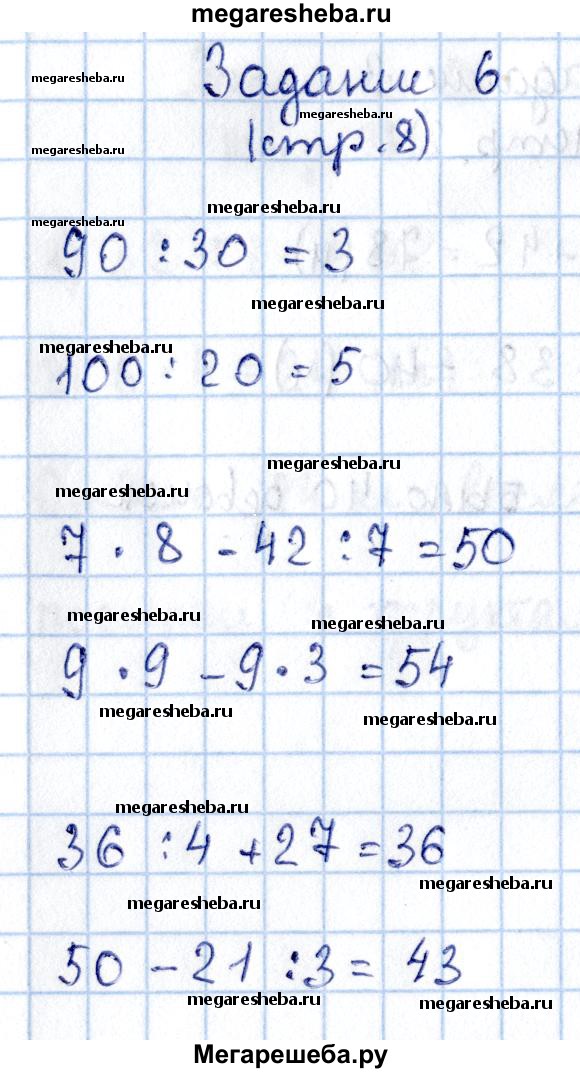 megaresheba.ru
Задание 6
megaresheba.ru
megaresheba.ru
(стр. 8)
megaresheba.ru
megaresheba.ru
megaresheba.ru
90 : 30 = 3
megaresheba.ru
megaresheba.ru
100 : 20 = 5
megaresheba.ru
megaresheba.ru
7 · 8 - 42 : 7 = 50
megaresheba.ru
megaresheba.ru
9 · 9 - 9 · 3 = 54
megaresheba.ru
megaresheba.ru
megaresheba.ru
36 : 4 + 27 = 36
megaresheba.ru
megaresheba.ru
50 - 21 : 3 = 43
megaresheba.ru
megaresheba.ru
Мегарешеба.ру